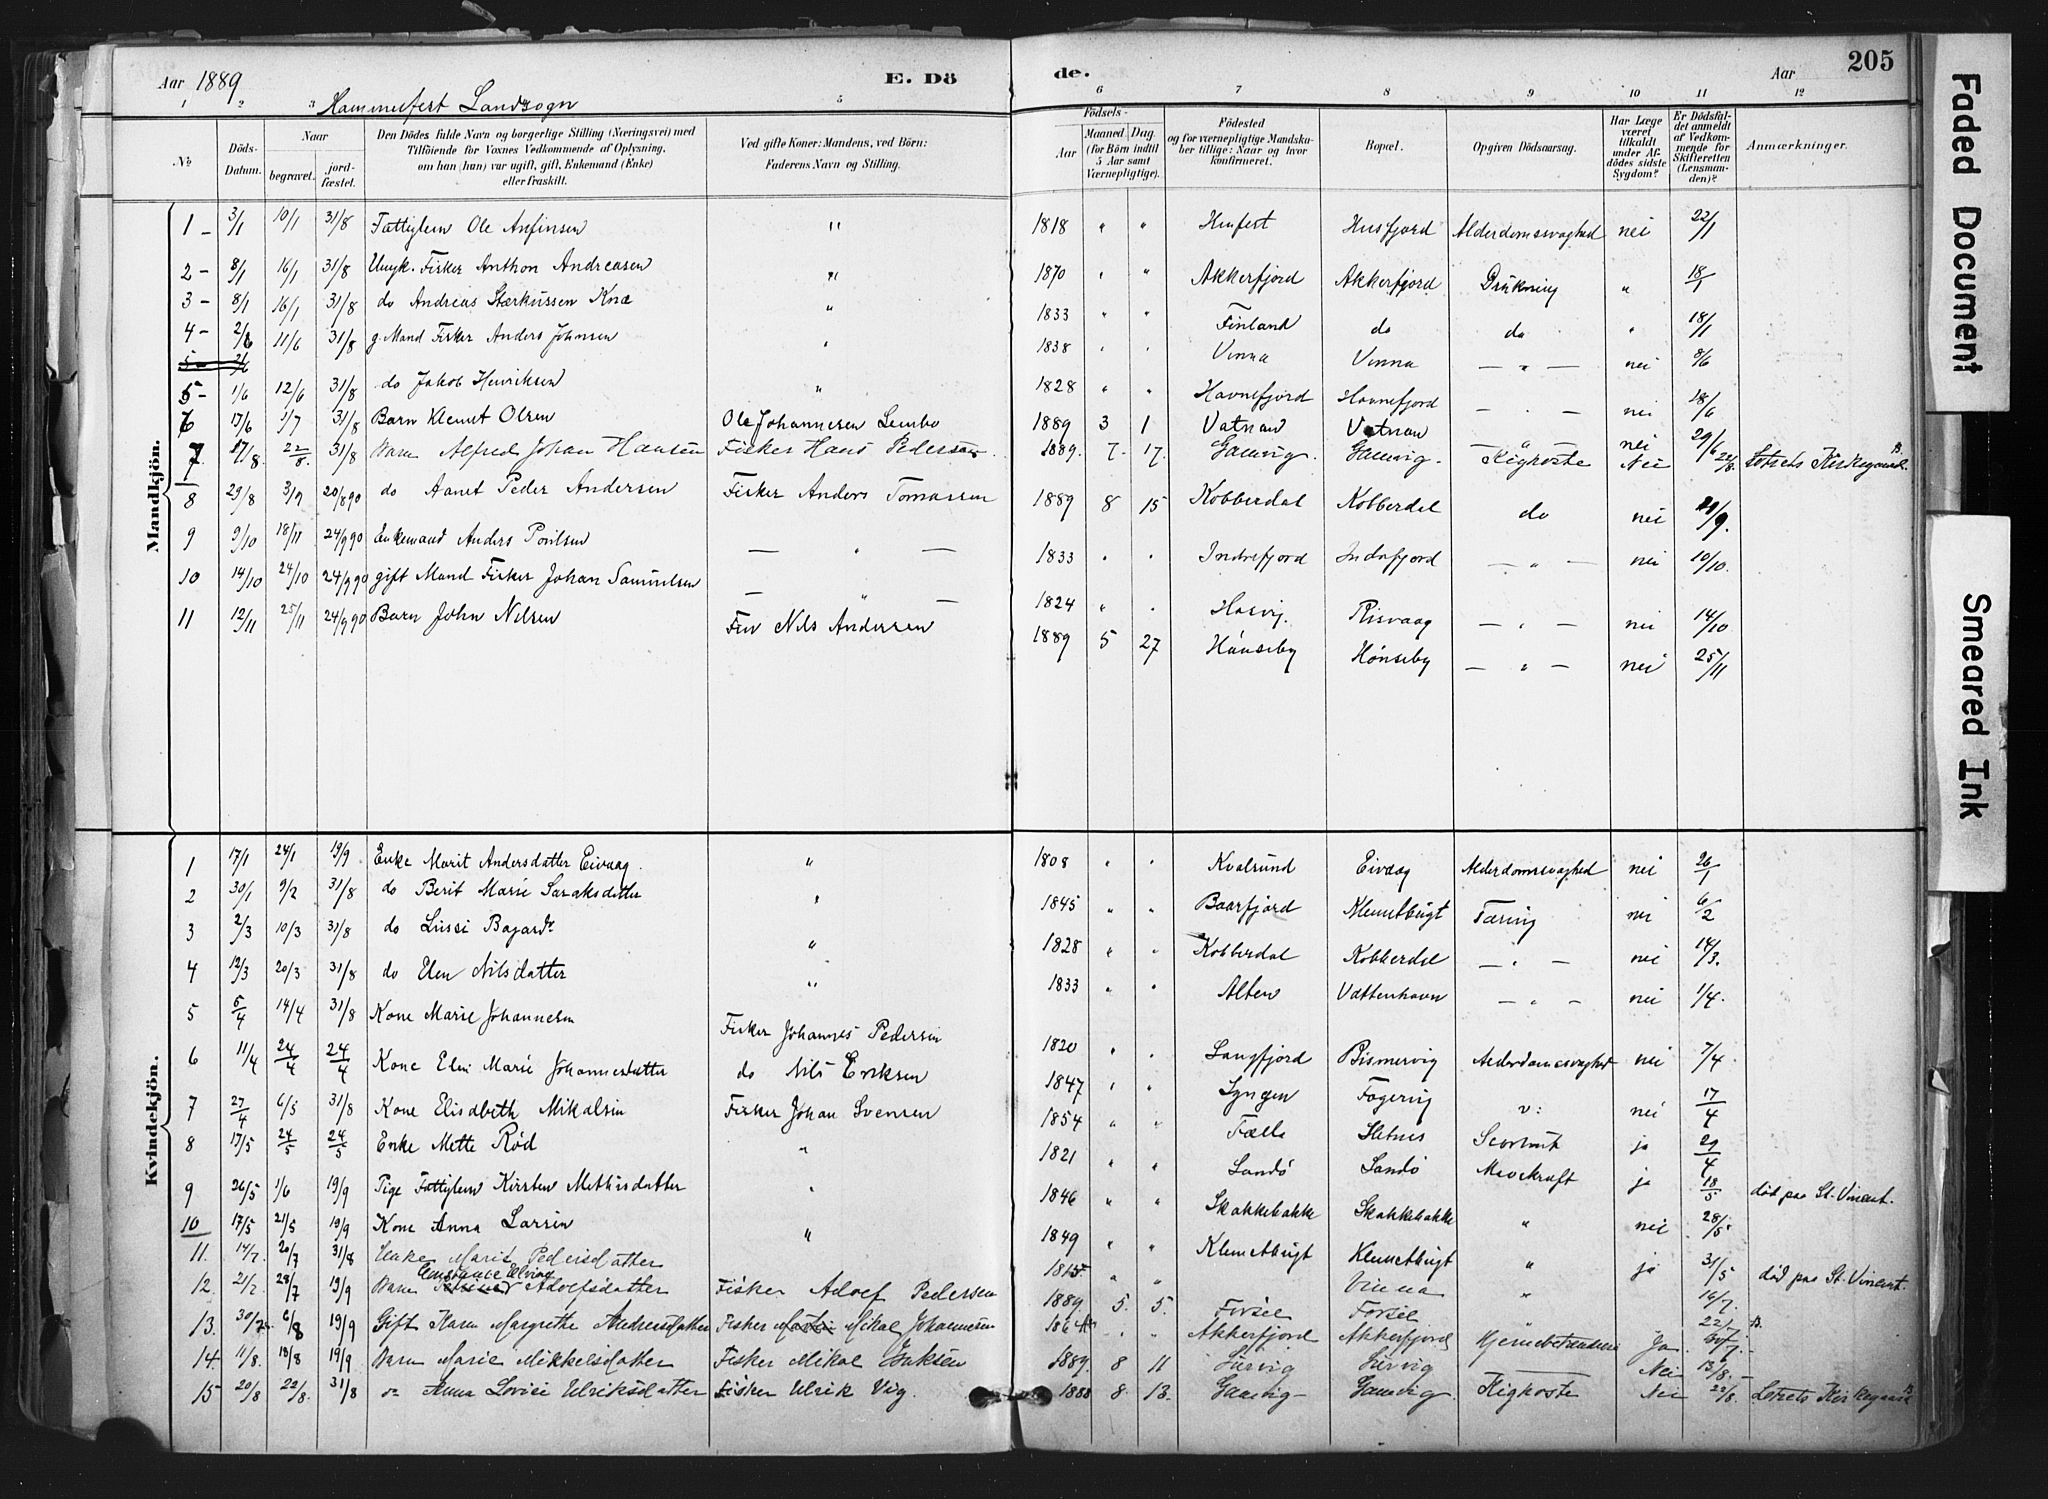 Aar 1889
E. Dö
de.
Aar
205
Hammerfest Landsogn
1 2 3 5 6 7 8 9 10 11 12
No
Döds-Datum.
Naar
begravet.
jord-fæstet.
Den Dödes fulde Navn og borgerlige Stilling (Næringsvei) med
Tilföiende for Voxnes Vedkommende af Oplysning,
om han (hun) var ugift, gift, Enkemand (Enke)
eller fraskilt.
Ved gifte Koner: Mandens, ved Börn:
Faderens Navn og Stilling.
Födsels-
Aar
Maaned Dag
(for Börn indtil
5 Aar samt
Værnepligtige).
Födested
og for værnepligtige Mandska-
ber tillige: Naar og hvor
konfirmeret.
Bopæl.
Opgiven Dödsaarsag.
Har Læge
været
tilkaldt
under Af-
dödes sidste
Sygdom?
Er Dödsfal-
det anmeldt
af Vedkom-
mende for
Skifteretten
(Lensman-
den)?
Anmærkninger.
Mandkjön.
1 - 3/1 10/1 31/8 Fattiglem Ole Anfinsen " 1818 " " Hmfest Husfjord Alderdomssvaghed nei 22/1
2 - 8/1 16/1 31/8 Ungk. Fisker Anthon Andreasen " 1870 " " Akkerfjord Akkerfjord Drukning " 18/1
3 - 8/1 16/1 31/8 do Andreas Stærkussen " 1833 " " Finland do do " 18/1
4 - 2/6 11/6 31/8 g. Mand Fisker Anders Johnsen " 1838 " " Vinna Vinna — " — nei 8/6
5 - 1/6 12/6 31/8 do Jakob Henriksen " 1828 " " Havnefjord Havnefjord — " — nei 18/6
6 13/6 1/7 31/8 Barn Klemet Olsen Ole Johannesen Lembo 1889 3 1 Vatnan Vatnan " nei 29/6
7. 17/8. 22/8. 31/8 Barn Alfred Johan Hansen Fisker Hans Pedersen 1889. 7. 17. Gamvig. Gamvig. Kighoste Nei 22/8. Kirkegaard
8 29/8 3/9 20/8 90 do Aanet Peder Andersen Fisker Anders Tomassen 1889 8 15 Kobberdal Kobberdal do nei /9.
9 9/10 18/11 24/9 90 Enkemand Anders Poulsen — " — 1833 " " Indrefjord Indrefjord — " — nei 10/10.
10 14/10 24/10 24/9 90 gift Mand Fisker Johan Samuelsen — " — 1824 " " Hasvig. Risvaag — " — nei 14/10
11 12/11 25/11 24/9 90 Barn John Nilsen Nils Andersen 1889 5 27 Hønseby Hønseby — " — nei 25/11
Kvindekjön.
1 17/1 24/1 19/9 Enke Marit Andersdatter Eivaag. " 1808 " " Kvalsund Eivaag Alderdomssvaghed nei 26/1
2 30/1 9/2 31/8 do Berit Marie Saraksdatter " 1845 " " Baarfjord Klemetbugt Tæring nei 6/2
3 2/3 10/3 31/8 do Lussi " 1828 " " Kobberdal Kobberdal — " — nei 14/3.
4 12/3 20/3 31/8 do Elen Nilsdatter " 1833 " " Alten Vattenhavn — " — nei 1/4.
5 5/4 14/4 31/8 Kone Marie Johannesen Fisker Johannes Pedersen 1820 " " Langfjord Bismervig Alderdomssvaghed nei 7/4
6 11/4 24/4 24/4 Kone Elen Marie Johannesdatter do Nils Eriksen 1847 " " Lyngen Fagervig v: nei 17/4
7 27/4 6/5 31/8 Kone Elisabeth Mikalsen Fisker Johan Svensen 1854 " " Slotnes ja 29/4
8 17/5 24/5 24/5 Enke Mette Rød " 1821 " " Sandö Sandö Mavekraft ja 18/5 död paa St. Vincent.
9 26/5 1/6 19/9 Pige Fattiglem Kirsten Mathisdatter " 1846 " " Skakkebakke Skakkebakke " nei 28/5
10 17/5 21/5 19/9 Kone Anna Larsen " 1849 " " Klemetbugt Klemetbugt " ja 31/5 död paa St. Vincent.
11. 14/7. 20/7 31/8 Enke Marit Pedersdatter 1815 " " Vinna " 16/7.
12. 21/7. 28/7 19/9 Barn Constance Elvine Adolfsdatter Fisker Adolf Pedersen 1889. 5. 5. Forsöl Forsöl 22/7
13. 30/7. 6/8 19/9 Gift Karen Margrethe Andreasdatter Fisker Mikal Johannesen " " Akkerfjord Akkerfjord Hjernebetændelse Ja. 30/7.
14. 11/8. 18/8 19/9 Barn Marie Mikkelsdatter Fisker Mikal Isaksen 1889. 8 11 Survig Survig Nei 13/8.
15 20/8 22/8. 31/8 do Anna Lovise Ulriksdatter Fisker Ulrik Vig. 1888 8. 13. Gamvig Gamvig. Kighoste Nei 22/8. Kirkegaard
Faded Document
Smeared Ink